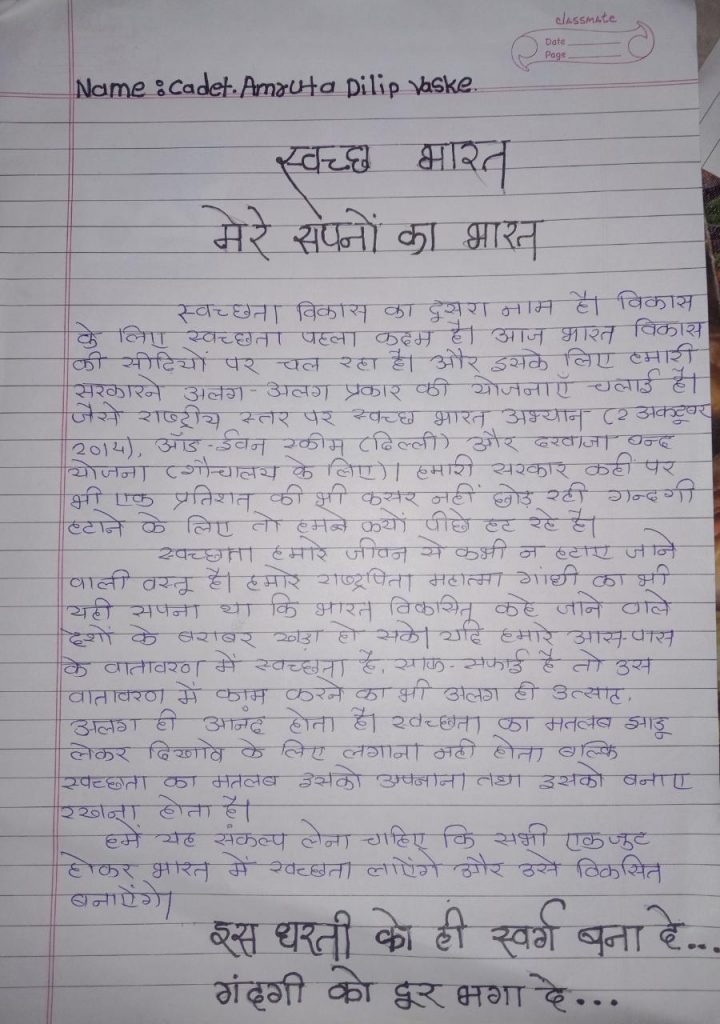 classmate
Date
Page
Name : Cadet. Amruta Dilip Vaske.
स्वच्छ भारत
मेरे सपनों का भारत
स्वच्छता विकास का दुसरा नाम है। विकास
के लिए स्वच्छता पहला कदम है। आज भारत विकास
की सीढियों पर चल रहा है। और इसके लिए हमारी
सरकारने अलग-अलग प्रकार की योजनाएँ चलाई है।
जैसे राष्ट्रीय स्तर पर स्वच्छ भारत अभ्यान (2 अक्टूबर
2014), ऑड-ईवन स्कीम (दिल्ली) और दरवाजा बन्द
योजना (शौचालय के लिए)। हमारी सरकार कहीं पर
भी एक प्रतिशत की भी कसर नहीं छोड़ रही गन्दगी
हटाने के लिए तो हम क्यों पीछे हट रहे है।
स्वच्छता हमारे जीवन से कभी न हटाए जाने
वाली वस्तू है। हमारे राष्ट्रपिता महात्मा गांधी का भी
यही सपना था कि भारत विकासित कहे जाने वाले
देशों के बराबर खड़ा हो सके। यदि हमारे आस-पास
के वातावरण में स्वच्छता है, साफ-सफाई है तो उस
वातावरण में काम करने का भी अलग ही उत्साह,
अलग ही आनंद होता है। स्वच्छता का मतलब झाडू
लेकर दिखावे के लिए लगाना नही होता बल्कि
स्वच्छता का मतलब इसको अपनाना तथा इसको बनाए
रखना होता है।
हमें यह संकल्प लेना चाहिए कि सभी एकजुट
होकर भारत में स्वच्छता लाएंगे और उसे विकसित
बनाएंगे।
इस धरती को ही स्वर्ग बना दे...
गंदगी को दूर भगा दे...